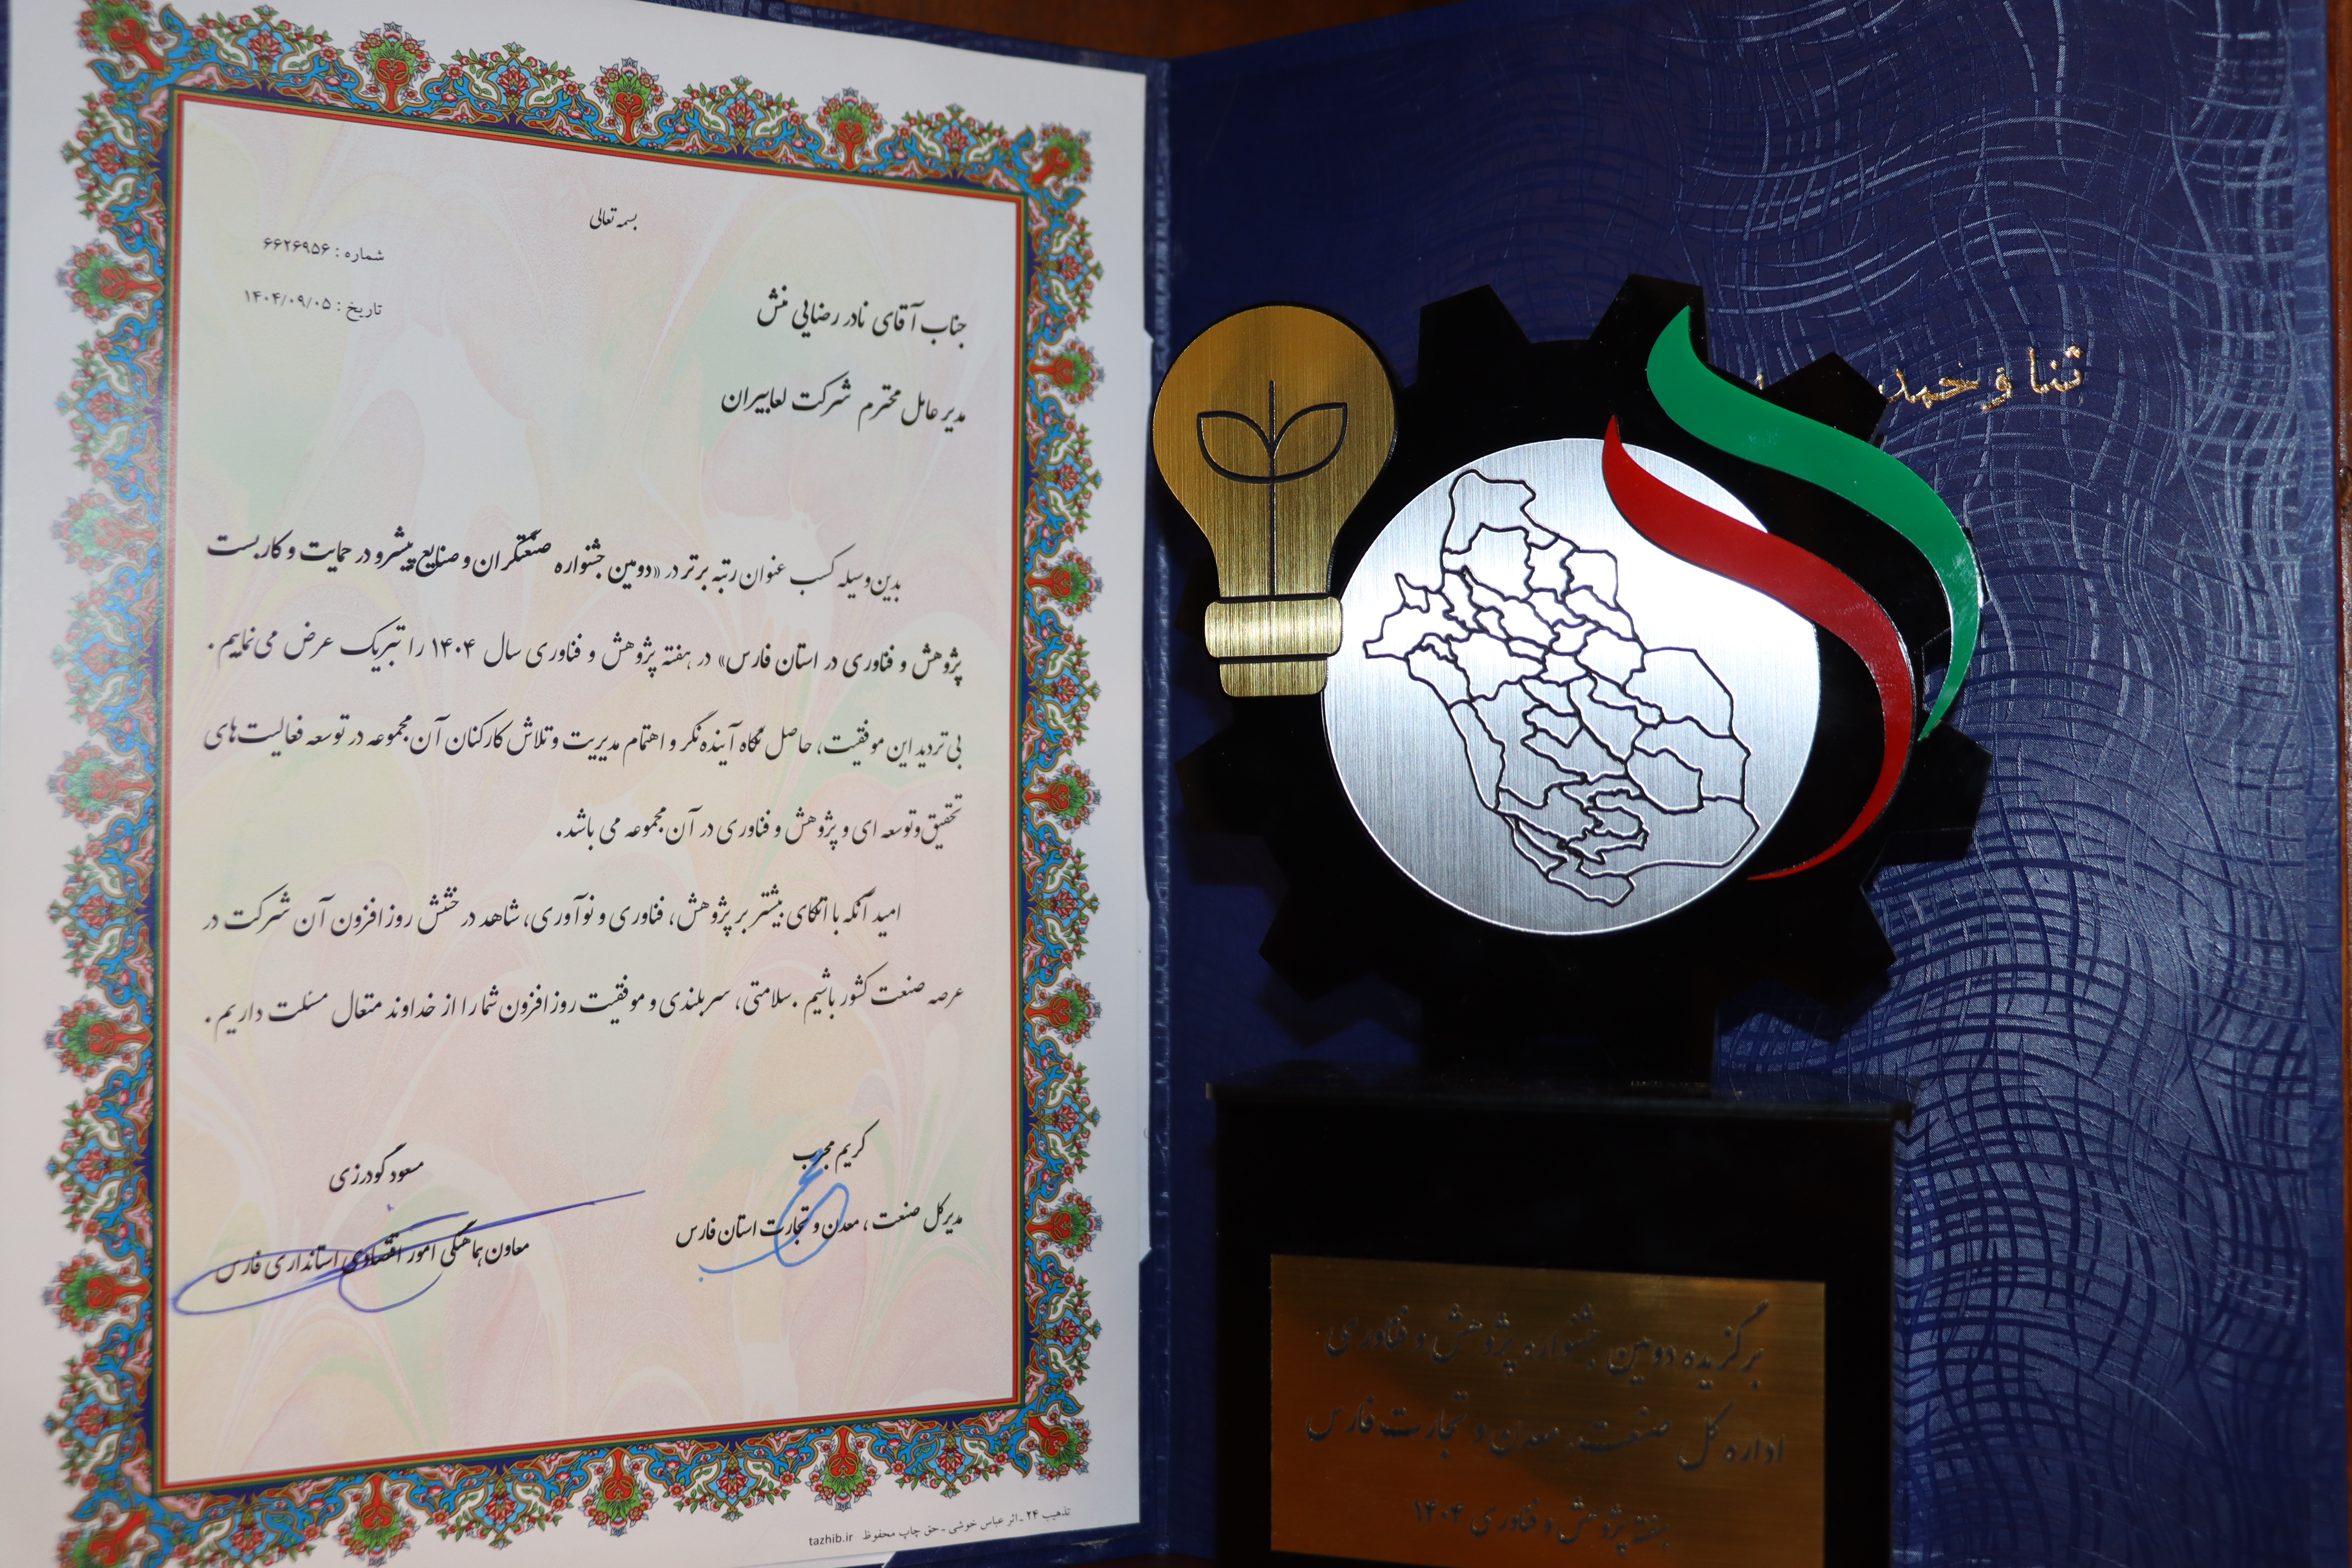 بسمه تعالی
شماره : ۶۶۲۶۹۵۶
تاریخ : ۱۴۰۴/۰۹/۰۵
جناب آقای نادر رضایی منش
مدیر عامل محترم شرکت لعابیران
بدین‌وسیله کسب عنوان رتبه برتر در «دومین جشنواره صنعتگران و صنایع پیشرو در حمایت و کاربست
پژوهش و فناوری در استان فارس» در هفته پژوهش و فناوری سال ۱۴۰۴ را تبریک عرض می‌نماییم.
بی‌تردید این موفقیت، حاصل نگاه آینده‌نگر و اهتمام مدیریت و تلاش کارکنان آن مجموعه در توسعه فعالیت‌های
تحقیق‌و‌توسعه ای و پژوهش و فناوری در آن مجموعه می باشد.
امید آنکه با اتکای بیشتر بر پژوهش، فناوری و نوآوری، شاهد درخشش روزافزون آن شرکت در
عرصه صنعت کشور باشیم. سلامتی، سربلندی و موفقیت روزافزون شما را از خداوند متعال مسئلت داریم.
کریم مجرب
مدیرکل صنعت، معدن و تجارت استان فارس
مسعود گودرزی
معاون هماهنگی امور اقتصادی استانداری فارس
تذهیب ۲۴ ـ اثر عباس خوشی ـ حق چاپ محفوظ tazhib.ir
ثنا و حمد
برگزیده دومین جشنواره پژوهش و فناوری
اداره کل صنعت، معدن و تجارت فارس
هفته پژوهش و فناوری ۱۴۰۴